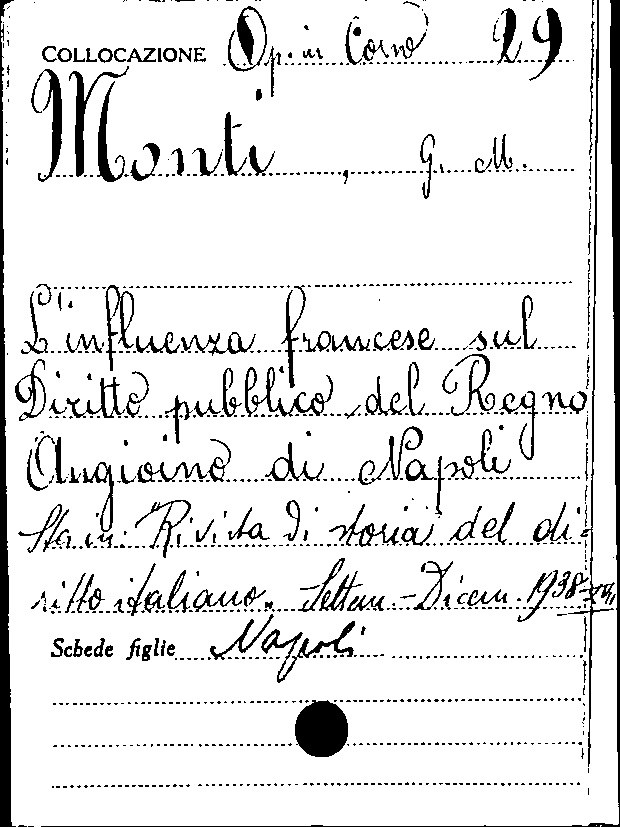 COLLOCAZIONE Op. in Corso 29
Monti, G. M.
L'influenza francese sul
Diritto pubblico del Regno
Angioino di Napoli
Sta in: "Rivista di storia del di-
ritto italiano". Settem.-Dicem. 1938-XVI,
Schede figlie Napoli